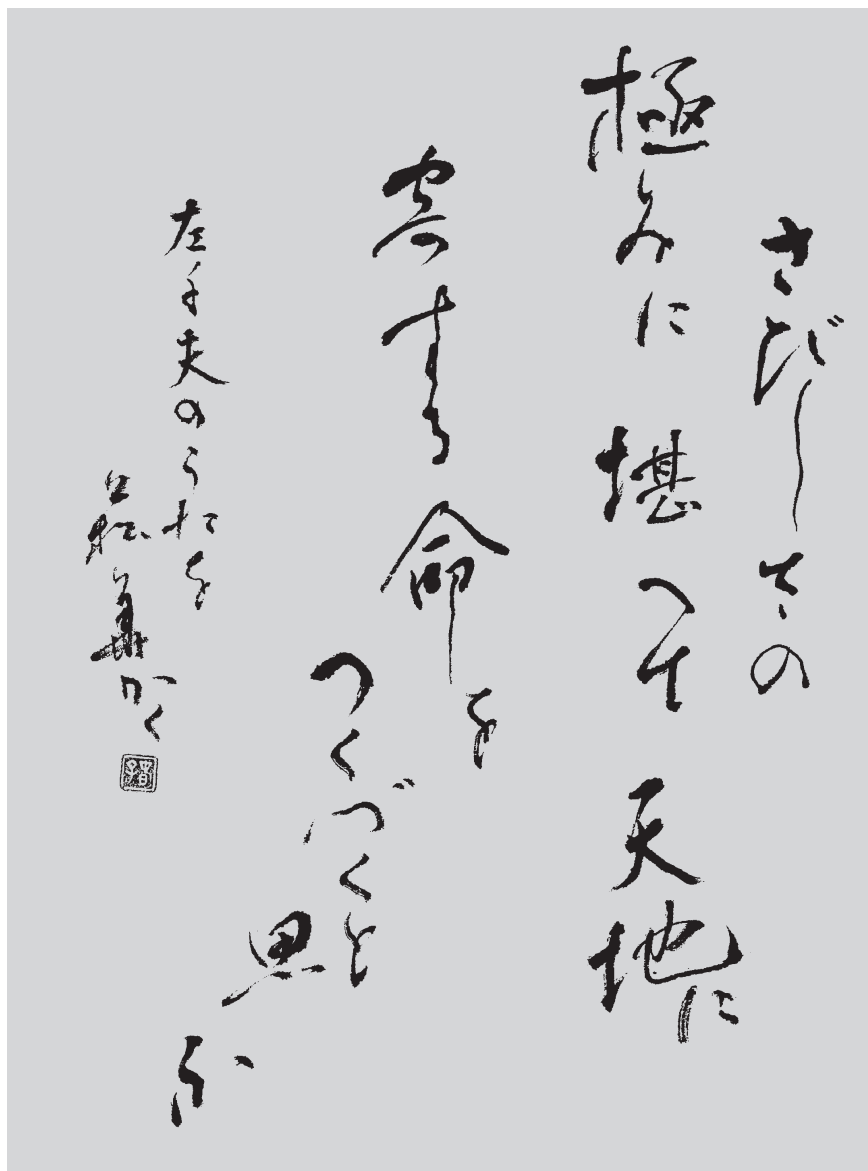 さびしさの
極みに堪へて天地に
寄する命を
つくづくと
思ふ
左千夫のうたを
華かく